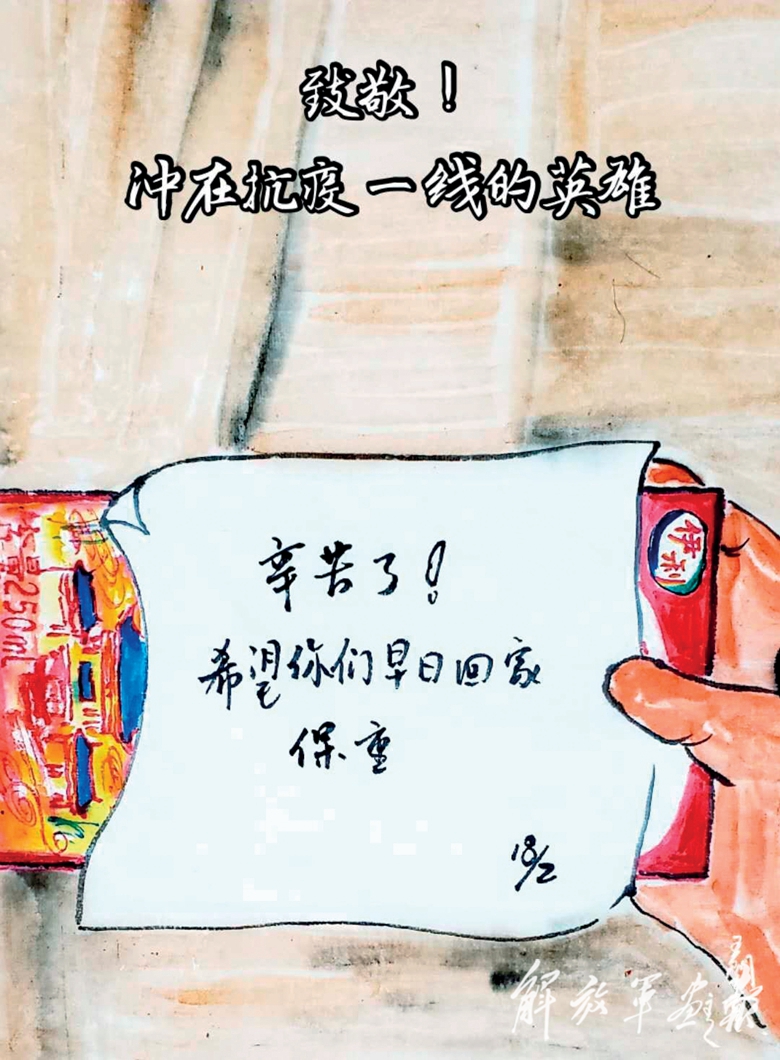 致敬！
冲在抗疫一线的英雄
辛苦了！
希望你们早日回家
保重
18/2
伊利
净含量250mL
解放军画报